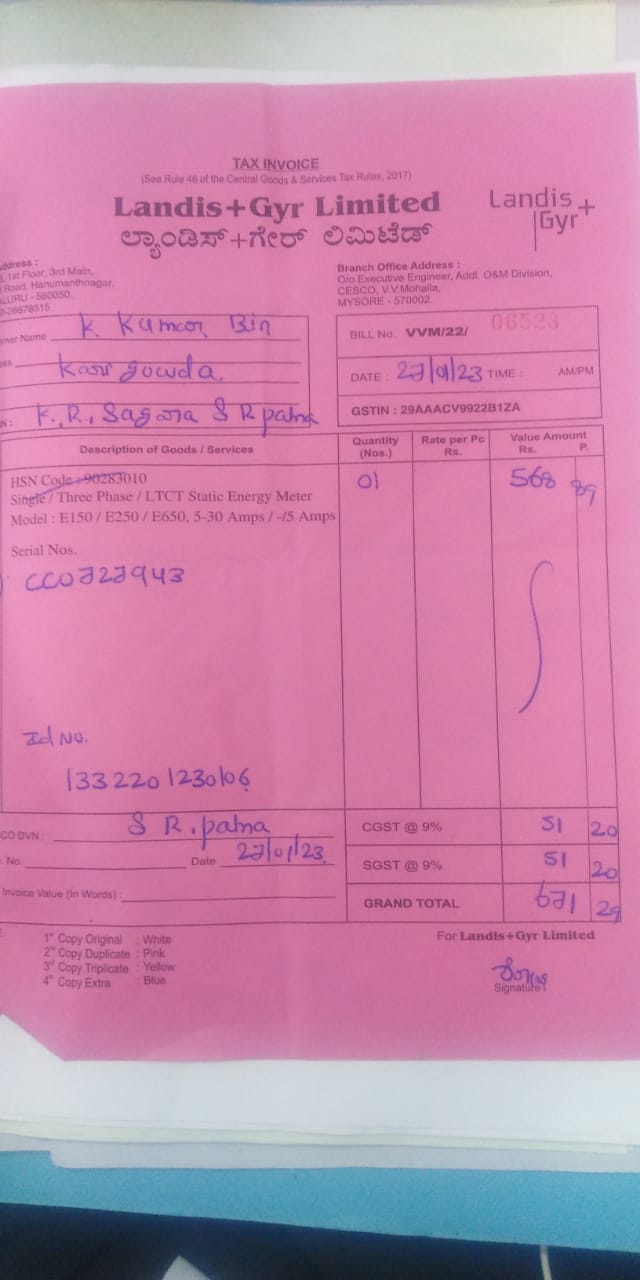 TAX INVOICE
(See Rule 46 of the Central Goods & Services Tax Rules, 2017)
Landis+Gyr Limited
ಲ್ಯಾಂಡಿಸ್+ಗೇರ್ ಲಿಮಿಟೆಡ್
Landis
Gyr+
ddress :
, 1st Floor, 3rd Main,
Road, Hanumanthnagar,
ALURU - 560050.
0-26678515
Branch Office Address :
O/o Executive Engineer, Addl. O&M Division,
CESCO, V.V.Mohalla,
MYSORE - 570002.
mer Name K. Kumar Bin
ess Kari gowda
N : K.R. Sagara S R patna
BILL No. VVM/22/ 06523
DATE : 27/01/23 TIME : AM/PM
GSTIN : 29AAACV9922B1ZA
Description of Goods / Services Quantity (Nos.) Rate per Pc Rs. Value Amount Rs. P.
HSN Code : 90283010 01 568 89
Single / Three Phase / LTCT Static Energy Meter
Model : E150 / E250 / E650, 5-30 Amps / -/5 Amps
Serial Nos.
CCU727943
Id No.
1332201230106
CO DVN : S R. patna
. No. Date 27/01/23
Invoice Value (In Words) :
CGST @ 9% 51 20
SGST @ 9% 51 20
GRAND TOTAL 671 29
1st Copy Original : White
2nd Copy Duplicate : Pink
3rd Copy Triplicate : Yellow
4th Copy Extra : Blue
For Landis+Gyr Limited
Signature